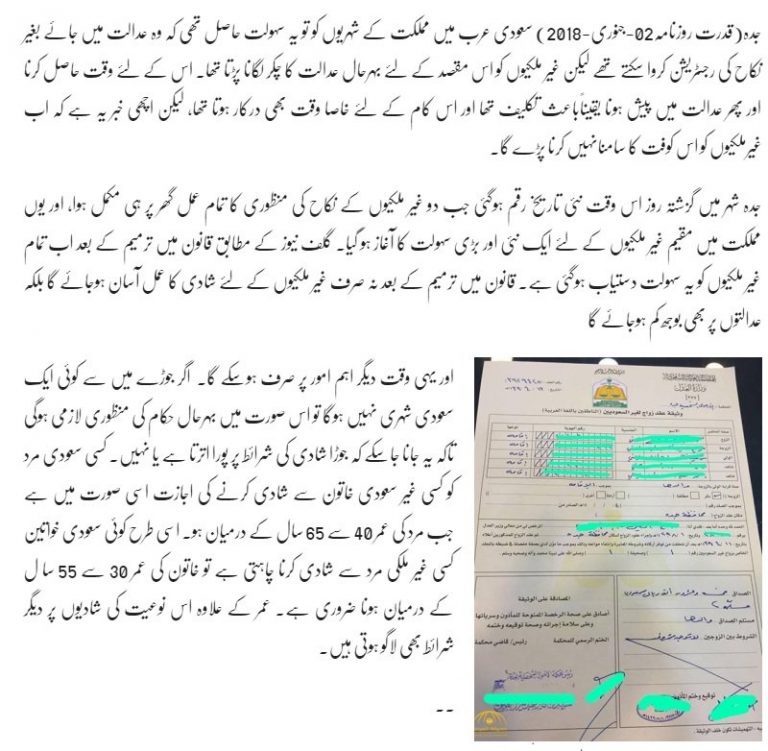 جدہ(قدرت روزنامہ02-جنوری-2018) سعودی عرب میں مملکت کے شہریوں کو تو یہ سہولت حاصل تھی کہ وہ عدالت میں جائے بغیر
نکاح کی رجسٹریشن کروا سکتے تھے لیکن غیر ملکیوں کو اس مقصد کے لئے بہرحال عدالت کا چکر لگانا پڑتا تھا۔ اس کے لئے وقت حاصل کرنا
اور پھر عدالت میں پیش ہونا یقیناً باعث تکلیف تھا اور اس کام کے لئے خاصا وقت بھی درکار ہوتا تھا، لیکن اچھی خبر یہ ہے کہ اب
غیر ملکیوں کو اس کوفت کا سامنا نہیں کرنا پڑے گا۔
جدہ شہر میں گزشتہ روز اس وقت نئی تاریخ رقم ہوگئی جب دو غیر ملکیوں کے نکاح کی منظوری کا تمام عمل گھر پر ہی مکمل ہوا، اور یوں
مملکت میں مقیم غیر ملکیوں کے لئے ایک نئی اور بڑی سہولت کا آغاز ہو گیا۔ گلف نیوز کے مطابق قانون میں ترمیم کے بعد اب تمام
غیر ملکیوں کو یہ سہولت دستیاب ہوگئی ہے۔ قانون میں ترمیم کے بعد نہ صرف غیر ملکیوں کے لئے شادی کا عمل آسان ہوجائے گا بلکہ
عدالتوں پر بھی بوجھ کم ہوجائے گا
اور یہی وقت دیگر اہم امور پر صرف ہوسکے گا۔ اگر جوڑے میں سے کوئی ایک
سعودی شہری نہیں ہوگا تو اس صورت میں بہرحال حکام کی منظوری لازمی ہوگی
تاکہ یہ جانا جاسکے کہ جوڑا شادی کی شرائط پر پورا اترتا ہے یا نہیں۔ کسی سعودی مرد
کو کسی غیر سعودی خاتون سے شادی کرنے کی اجازت اسی صورت میں ہے
جب مرد کی عمر 40 سے 65 سال کے درمیان ہو۔ اسی طرح کوئی سعودی خواتین
کسی غیر ملکی مرد سے شادی کرنا چاہتی ہے تو خاتون کی عمر 30 سے 55 سا ل
کے درمیان ہونا ضروری ہے۔ عمر کے علاوہ اس نوعیت کی شادیوں پر دیگر
شرائط بھی لاگو ہوتی ہیں۔
--
وزارة العدل
وثيقة عقد زواج لغير السعوديين (الناطقين باللغة العربية)
الاسم
الجنسية
رقم الهوية
الزوج
الزوجة
الولي
شاهد
شاهد
محافظة جدة
المصادقة على الوثيقة
أصادق على صحة الرخصة الممنوحة للمأذون وسريانها
وعلى سلامة إجرائه وصحة توقيعه وختمه
الختم الرسمي للمحكمة
رئيس/ قاضي محكمة
الصداق
مستلم الصداق
الشروط بين الزوجين
توقيع وختم المأذون